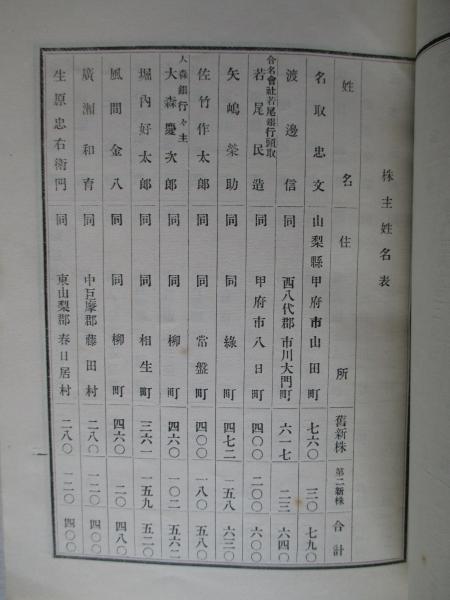 株主姓名表
姓名 住所 舊新株 第二新株 合計
名取忠文 山梨縣 甲府市山田町 七六〇 三〇 七九〇
渡邊信 同 西八代郡市川大門町 六一七 二三 六四〇
合名會社若尾銀行頭取
若尾民造 同 甲府市八日町 四〇〇 二〇〇 六〇〇
矢嶋榮助 同 同 綠町 四七二 一五八 六三〇
佐竹作太郎 同 同 常盤町 四〇〇 一八〇 五八〇
大森銀行々主
大森慶次郎 同 同 柳町 四六〇 一〇二 五六二
堀內好太郎 同 同 相生町 三六一 一五九 五二〇
風間金八 同 同 柳町 四六〇 二〇 四八〇
廣瀨和育 同 中巨摩郡藤田村 二八〇 一二〇 四〇〇
生原忠右衛門 同 東山梨郡春日居村 二八〇 一二〇 四〇〇